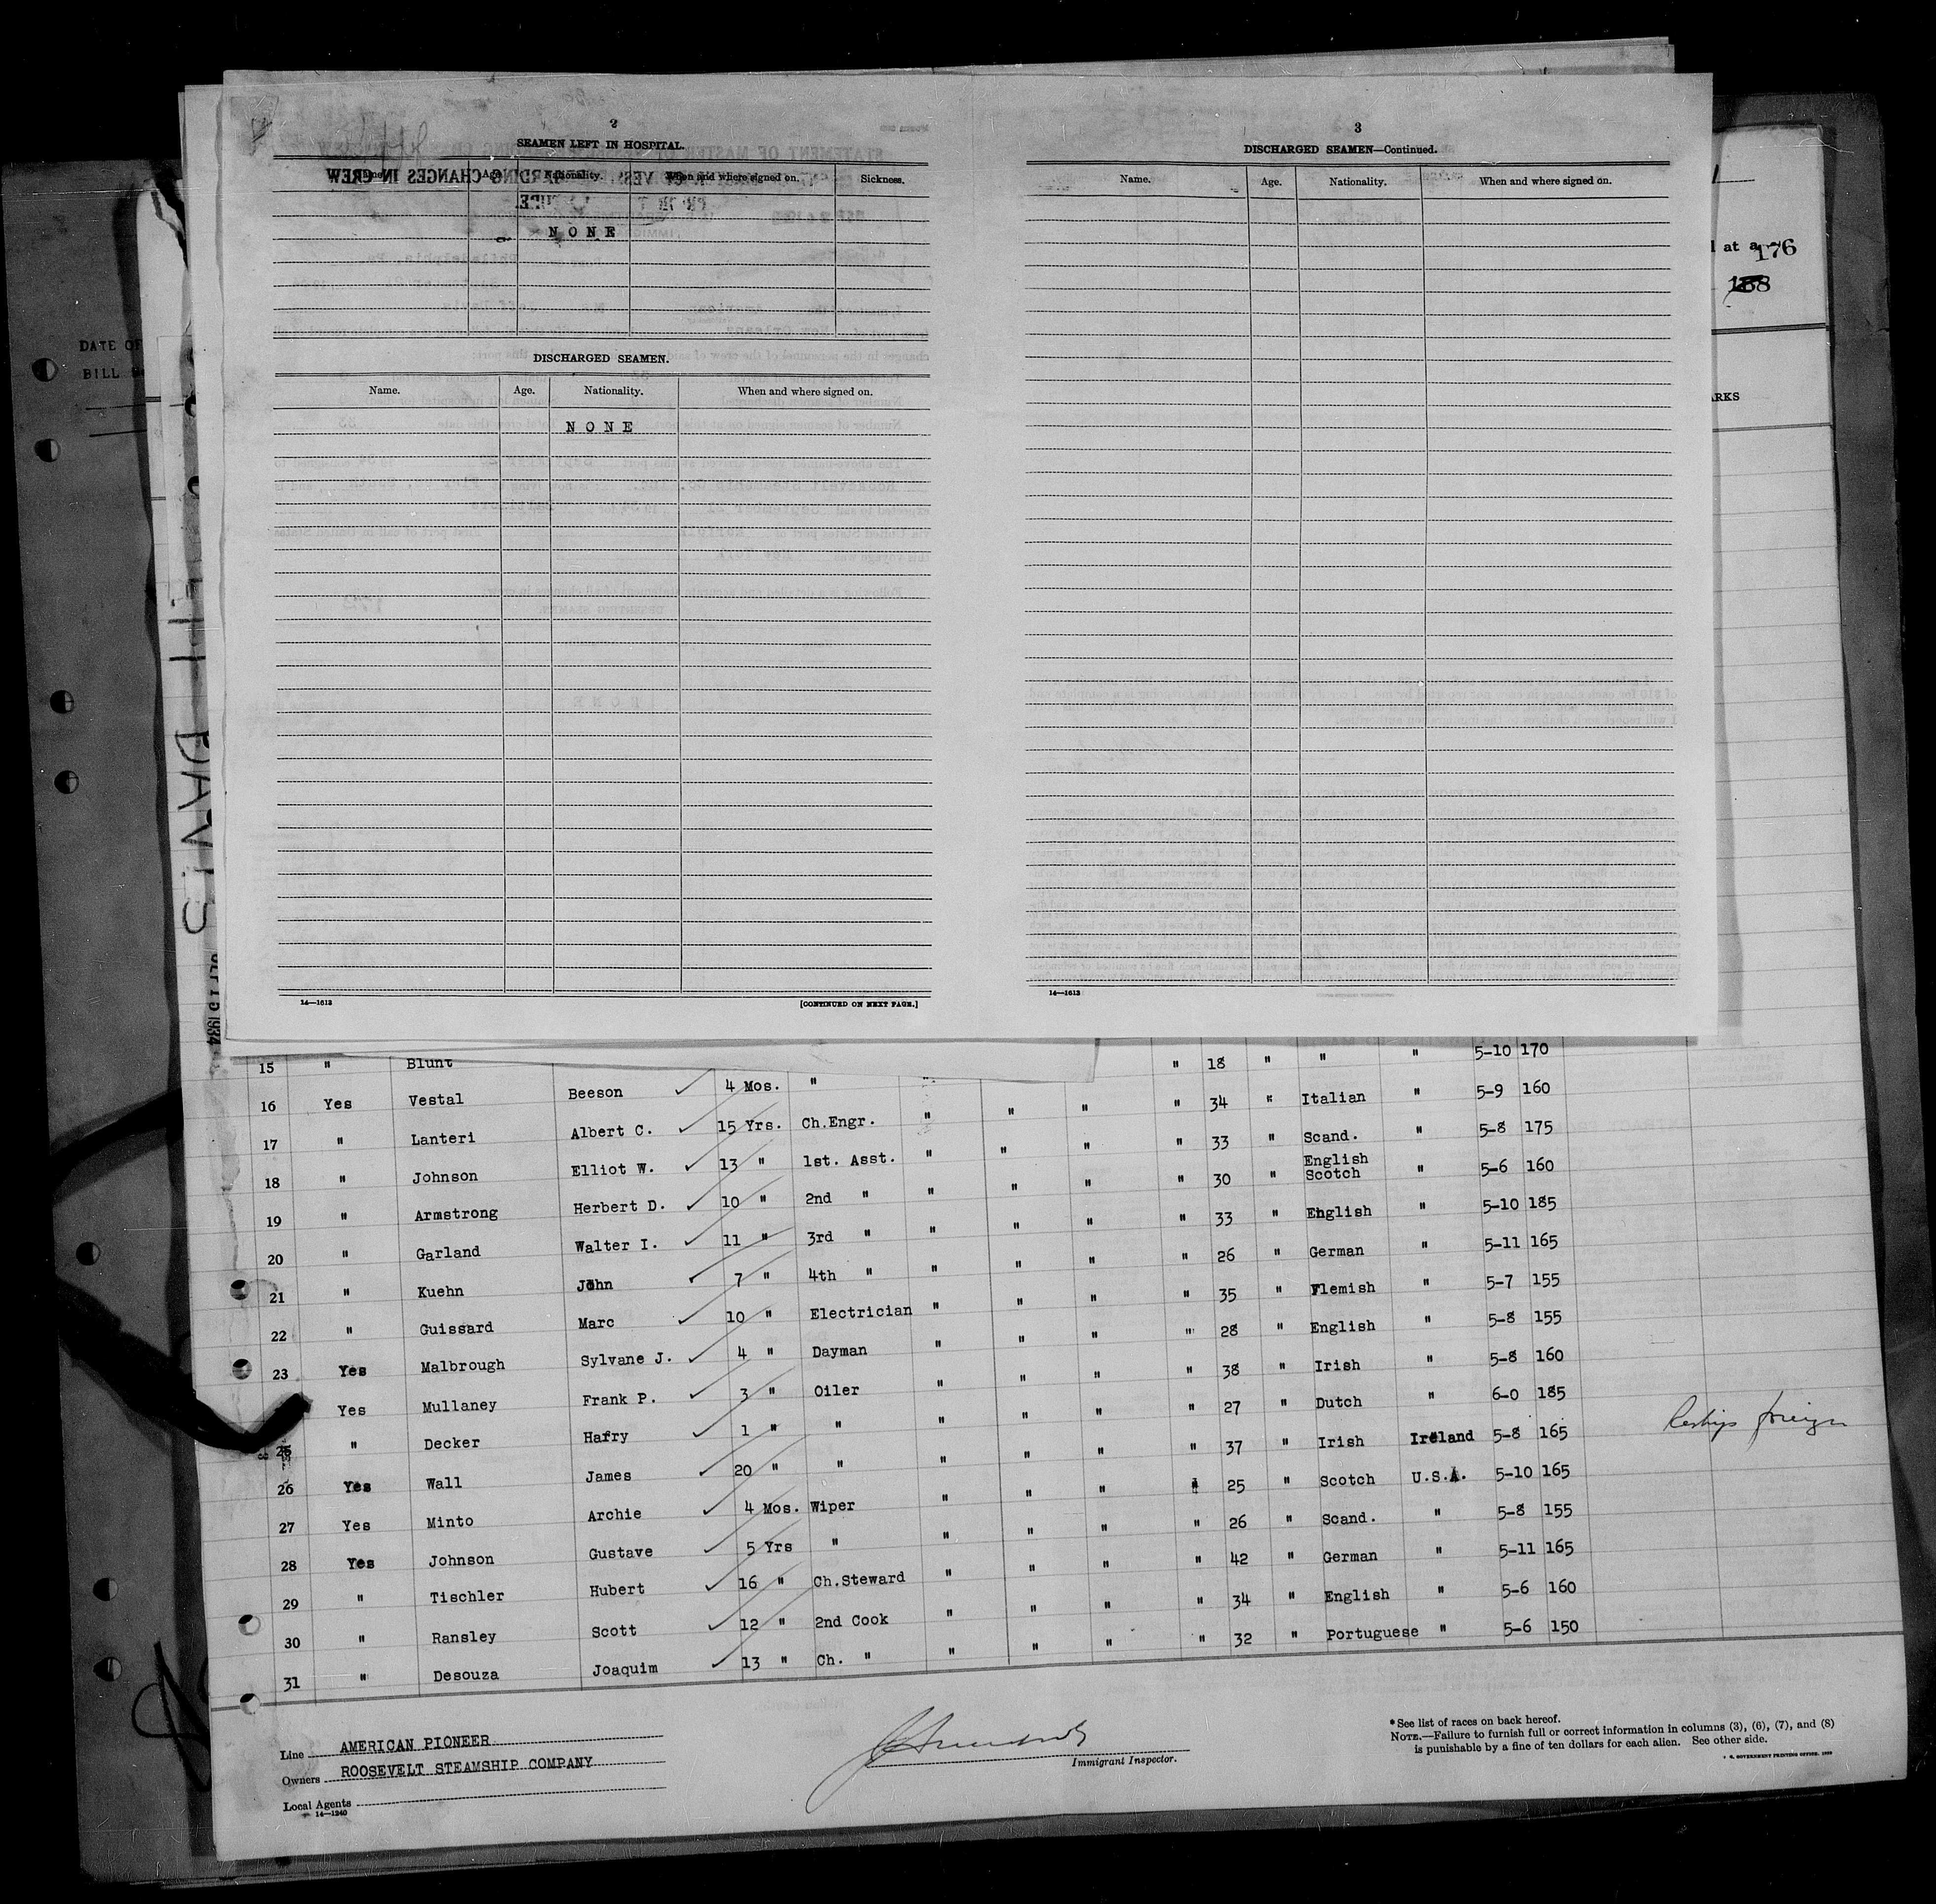 2
SEAMEN LEFT IN HOSPITAL.
Name. Age. Nationality. When and where signed on. Sickness.
NONE
DISCHARGED SEAMEN.
Name. Age. Nationality. When and where signed on.
NONE
14—1613 [CONTINUED ON NEXT PAGE.]
3
DISCHARGED SEAMEN—Continued.
Name. Age. Nationality. When and where signed on.
14—1613
at a
176
188
ARKS
DATE OF
BILL
DAVIS
1934
15 " Blunt " 18 " " " 5-10 170
16 Yes Vestal Beeson ✓ 4 Mos. " " 34 " Italian " 5-9 160
17 " Lanteri Albert C. ✓ 15 Yrs. Ch.Engr. " " " " 33 " Scand. " 5-8 175
18 " Johnson Elliot W. ✓ 13 " 1st. Asst. " " " " 30 " English Scotch " 5-6 160
19 " Armstrong Herbert D. ✓ 10 " 2nd " " " " " 33 " English " 5-10 185
20 " Garland Walter I. ✓ 11 " 3rd " " " " " 26 " German " 5-11 165
21 " Kuehn John ✓ 7 " 4th " " " " " 35 " Flemish " 5-7 155
22 " Guissard Marc ✓ 10 " Electrician " " " " 28 " English " 5-8 155
23 Yes Malbrough Sylvane J. ✓ 4 " Dayman " " " " 38 " Irish " 5-8 160
Yes Mullaney Frank P. ✓ 3 " Oiler " " " " 27 " Dutch " 6-0 185
25 " Decker Harry ✓ 1 " " " " " " 37 " Irish Ireland 5-8 165
26 Yes Wall James ✓ 20 " " " " " " 25 " Scotch U.S.A. 5-10 165
27 Yes Minto Archie ✓ 4 Mos. Wiper " " " " 26 " Scand. " 5-8 155
28 Yes Johnson Gustave ✓ 5 Yrs " " " " " 42 " German " 5-11 165
29 " Tischler Hubert ✓ 16 " Ch.Steward " " " " 34 " English " 5-6 160
30 " Ransley Scott ✓ 12 " 2nd Cook " " " " 32 " Portuguese " 5-6 150
31 " Desouza Joaquim ✓ 13 " Ch. " " " "
Line AMERICAN PIONEER
Owners ROOSEVELT STEAMSHIP COMPANY
Local Agents
14—1240
Immigrant Inspector.
*See list of races on back hereof.
NOTE.—Failure to furnish full or correct information in columns (3), (6), (7), and (8)
is punishable by a fine of ten dollars for each alien. See other side.
U. S. GOVERNMENT PRINTING OFFICE